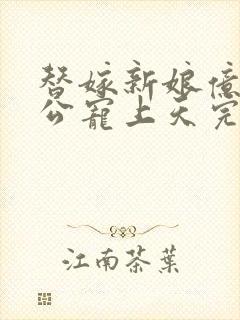 替嫁新娘億
公寵上天完
江南茶葉